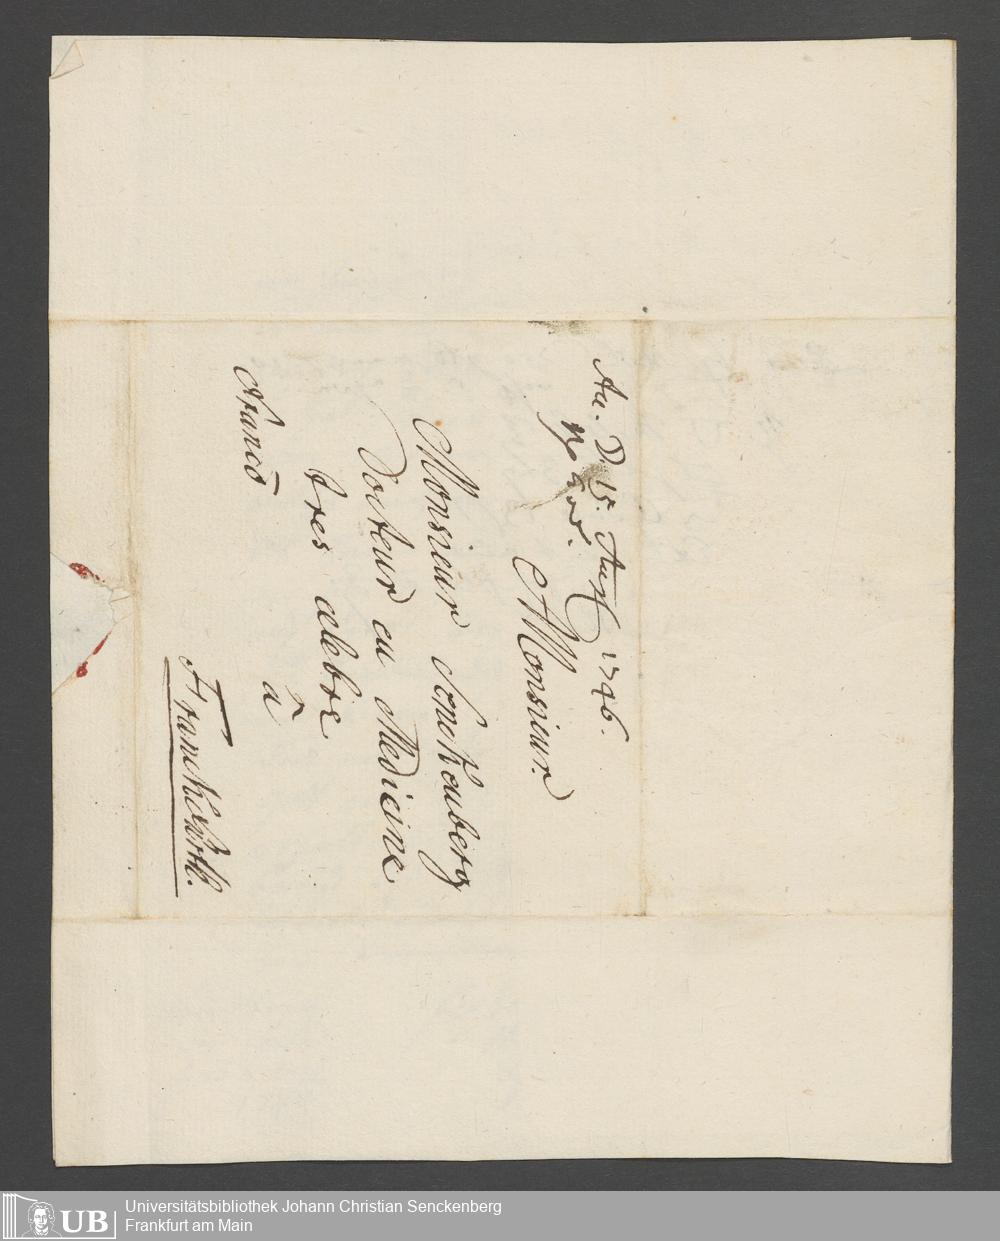 An. D. 15. Aug 1746.
Monsieur.
Monsieur Senckenberg
Docteur en Medicine
tres celebre
franco
à
Franckfurth.
UB Universitätsbibliothek Johann Christian Senckenberg
Frankfurt am Main